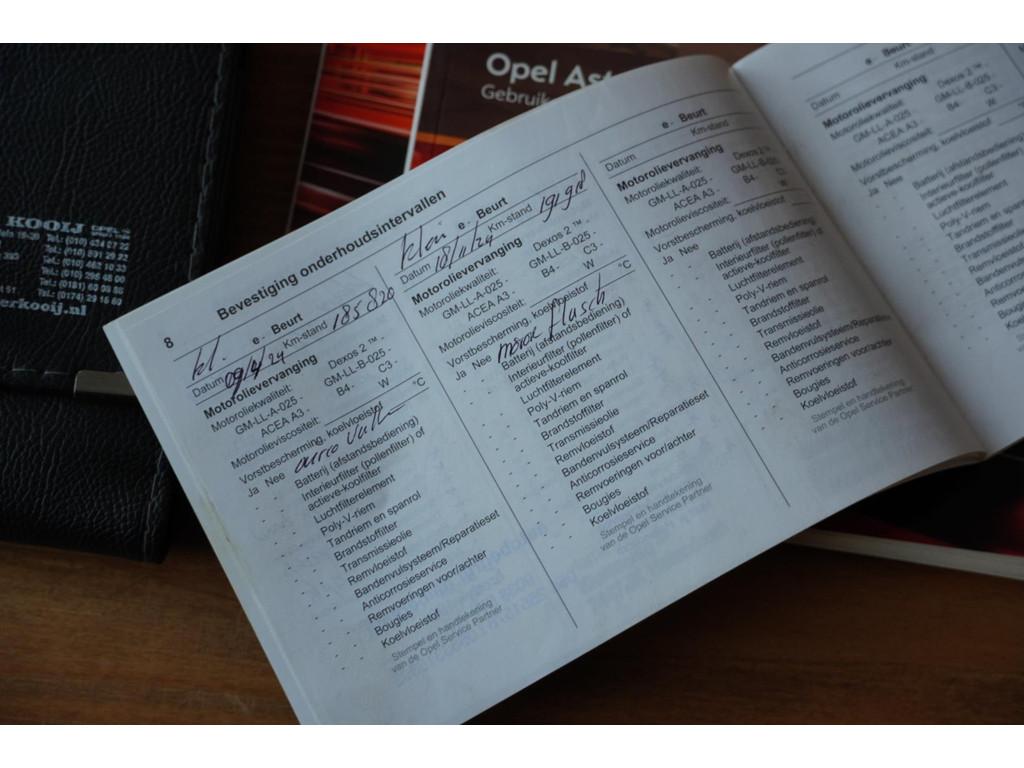 KOOIJ
Tel.: (010)
Tel.: (010)
Tel.: (010)
Tel.: (010)
Tel.: (0181)
Tel.: (0174)
erkooij.nl
Opel Ast
Gebruik
8 Bevestiging onderhoudsintervallen
kl. e - Beurt
Datum 09/4/24 Km-stand 185820
Motorolievervanging
Motoroliekwaliteit: Dexos 2 ™ -
GM-LL-A-025 - GM-LL-B-025 -
ACEA A3 - B4 - C3 -
Motorolieviscositeit: W °C
Vorstbescherming, koelvloeistof
Ja Nee Batterij (afstandsbediening)
- - Interieurfilter (pollenfilter) of
actieve-koolfilter
- - Luchtfilterelement
- - Poly-V-riem
- - Tandriem en spanrol
- - Brandstoffilter
- - Transmissieolie
- - Remvloeistof
- - Bandenvulsysteem/Reparatieset
- - Anticorrosieservice
- - Remvoeringen voor/achter
- - Bougies
- - Koelvloeistof
Stempel en handtekening
van de Opel Service Partner
klein e - Beurt
Datum 18/11/24 Km-stand
Motorolievervanging
Motoroliekwaliteit: Dexos 2 ™ -
GM-LL-A-025 - GM-LL-B-025 -
ACEA A3 - B4 - C3 -
Motorolieviscositeit: W °C
Vorstbescherming, koelvloeistof
Ja Nee Batterij (afstandsbediening)
- - Interieurfilter (pollenfilter) of
actieve-koolfilter
- - Luchtfilterelement
- - Poly-V-riem
- - Tandriem en spanrol
- - Brandstoffilter
- - Transmissieolie
- - Remvloeistof
- - Bandenvulsysteem/Reparatieset
- - Anticorrosieservice
- - Remvoeringen voor/achter
- - Bougies
- - Koelvloeistof
Stempel en handtekening
van de Opel Service Partner
e - Beurt
Datum Km-stand
Motorolievervanging
Motoroliekwaliteit: Dexos 2 ™ -
GM-LL-A-025 - GM-LL-B-025 -
ACEA A3 - B4 - C3 -
Motorolieviscositeit: W °C
Vorstbescherming, koelvloeistof
Ja Nee Batterij (afstandsbediening)
- - Interieurfilter (pollenfilter) of
actieve-koolfilter
- - Luchtfilterelement
- - Poly-V-riem
- - Tandriem en spanrol
- - Brandstoffilter
- - Transmissieolie
- - Remvloeistof
- - Bandenvulsysteem/Reparatieset
- - Anticorrosieservice
- - Remvoeringen voor/achter
- - Bougies
- - Koelvloeistof
Stempel en handtekening
van de Opel Service Partner
e - Beurt
Datum Km-stand
Motorolievervanging
Motoroliekwaliteit: Dexos 2 ™ -
GM-LL-A-025 - GM-LL-B-025 -
ACEA A3 - B4 - C3 -
Motorolieviscositeit: W
Vorstbescherming, koelvloeistof
Ja Nee Batterij (afstandsbe
- - Interieurfilter (poll
actieve-koolfilter
- - Luchtfilterelement
- - Poly-V-riem
- - Tandriem en span
- - Brandstoffilter
- - Transmissieo
- - Remvloeistof
- - Bandenvuls
- - Anticorros
- - Remvoer
- - Bougies
- - Koelvl
Stempel
van de